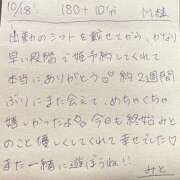 10/18! 180+10分 M様
出勤のシフトを載せてから、かなり
早い段階で姫予約してくれて
本当にありがとう 約2週間
ぶりにまた会えて、めちゃくちゃ
嬉しかったよ 今日も終始みと
のこと優しくしてくれて幸せでした♡
また一緒に遊ぼうね!!
みと